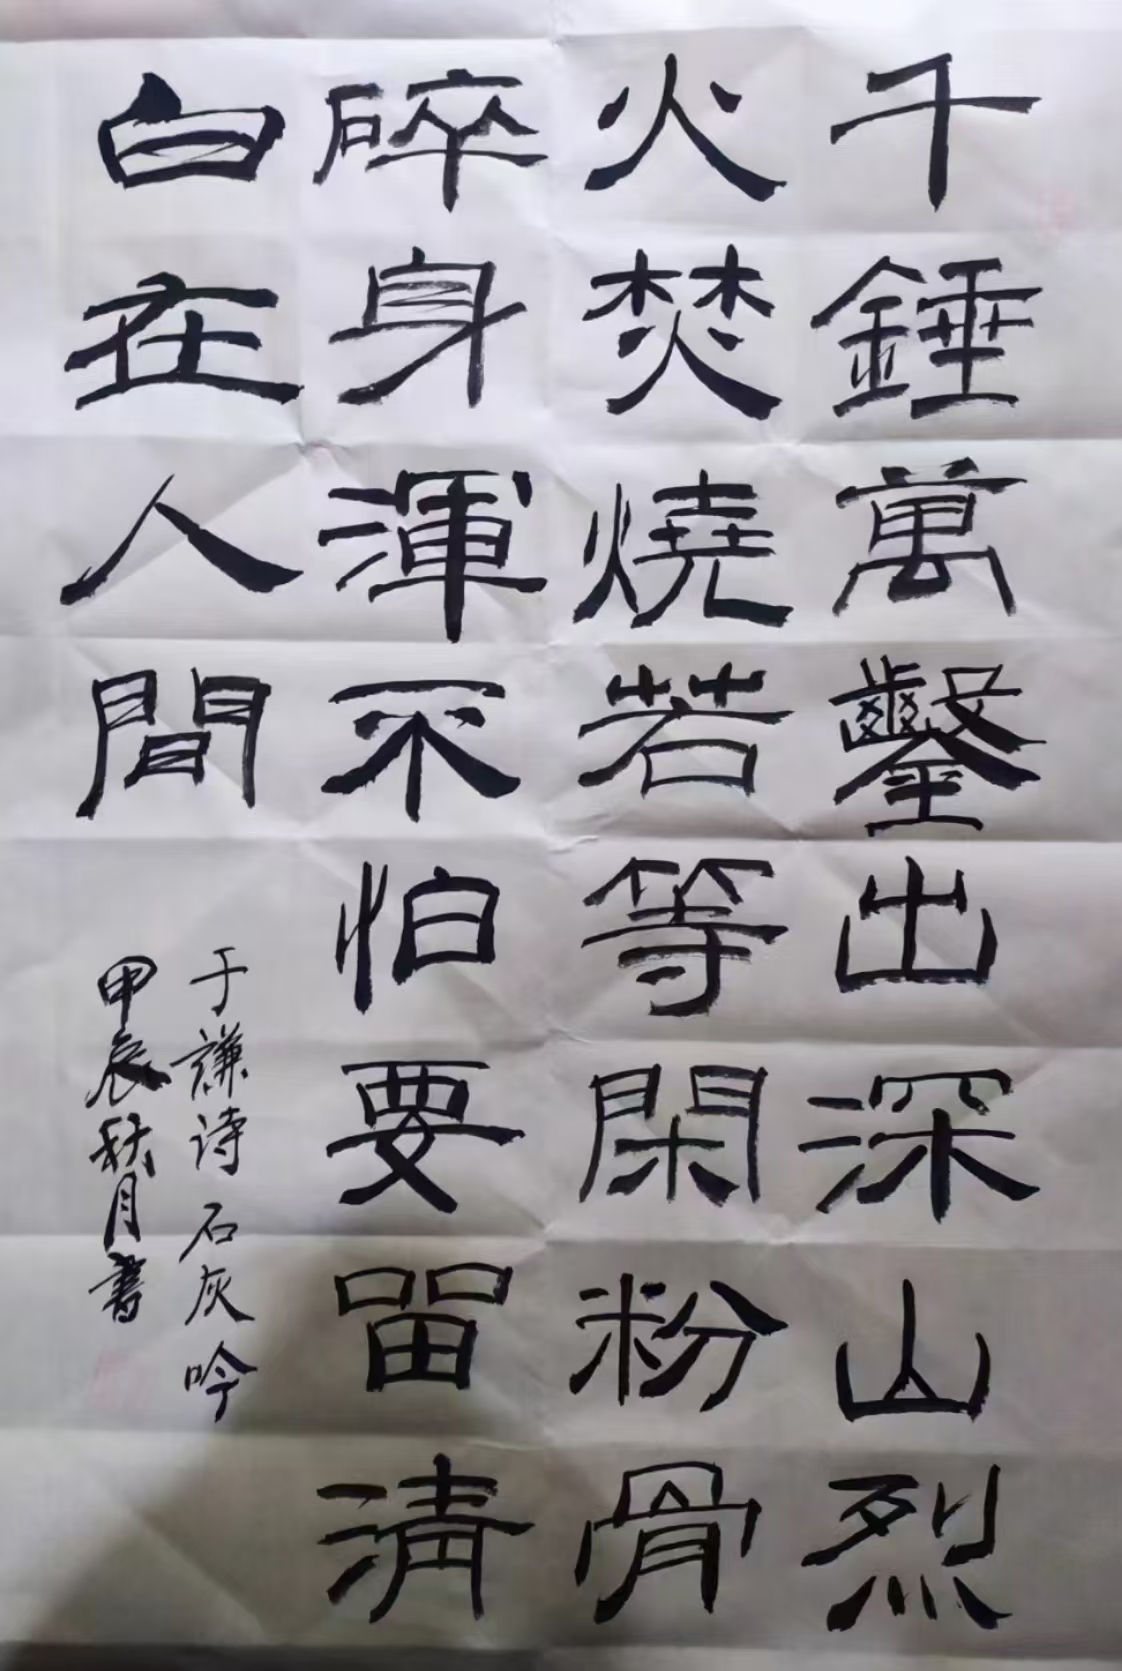 千錘萬鑿出深山烈
火焚燒若等閑粉骨
碎身渾不怕要留清
白在人間
于謙诗 石灰吟
甲辰秋月書